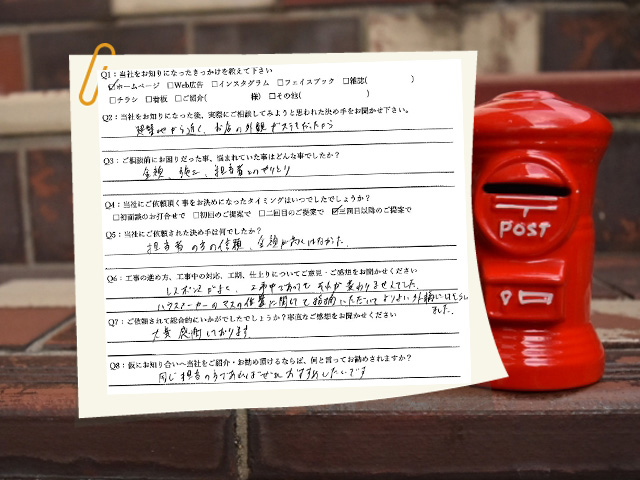 Q1：当社をお知りになったきっかけを教えて下さい
☑ホームページ □Web広告 □インスタグラム □フェイスブック □雑誌( )
□チラシ □看板 □ご紹介( 様) □その他( )
Q2：当社をお知りになった後、実際にご相談してみようと思われた決め手をお聞かせ下さい。
建築地から近く、お店の外観がステキだったから
Q3：ご相談前にお困りだった事、悩まれていた事はどんな事でしたか？
金額、施工、担当者とのやりとり
Q4：当社にご依頼頂く事をお決めになったタイミングはいつでしたでしょうか？
□初面談のお打合せで □初回のご提案で □二回目のご提案で ☑三回目以降のご提案で
Q5：当社にご依頼された決め手は何でしたか？
担当者の方の信頼、金額が高くはなかった
Q6：工事の進め方、工事中の対応、工期、仕上りについてご意見・ご感想をお聞かせください
レスポンスが早く、工事中であっても それが変わりませんでした。
ハウスメーカーの マスの位置に関して も指摘いただいて よりよい外構に
ました。
Q7：ご依頼されて総合的にいかがでしたでしょうか？率直なご感想をお聞かせください
大変 感謝しております
Q8：仮にお知り合いへ当社をご紹介・お勧め頂けるならば、何と言ってお勧めされますか？
同じ担当の方であればぜひ おすすめしたいです
POST